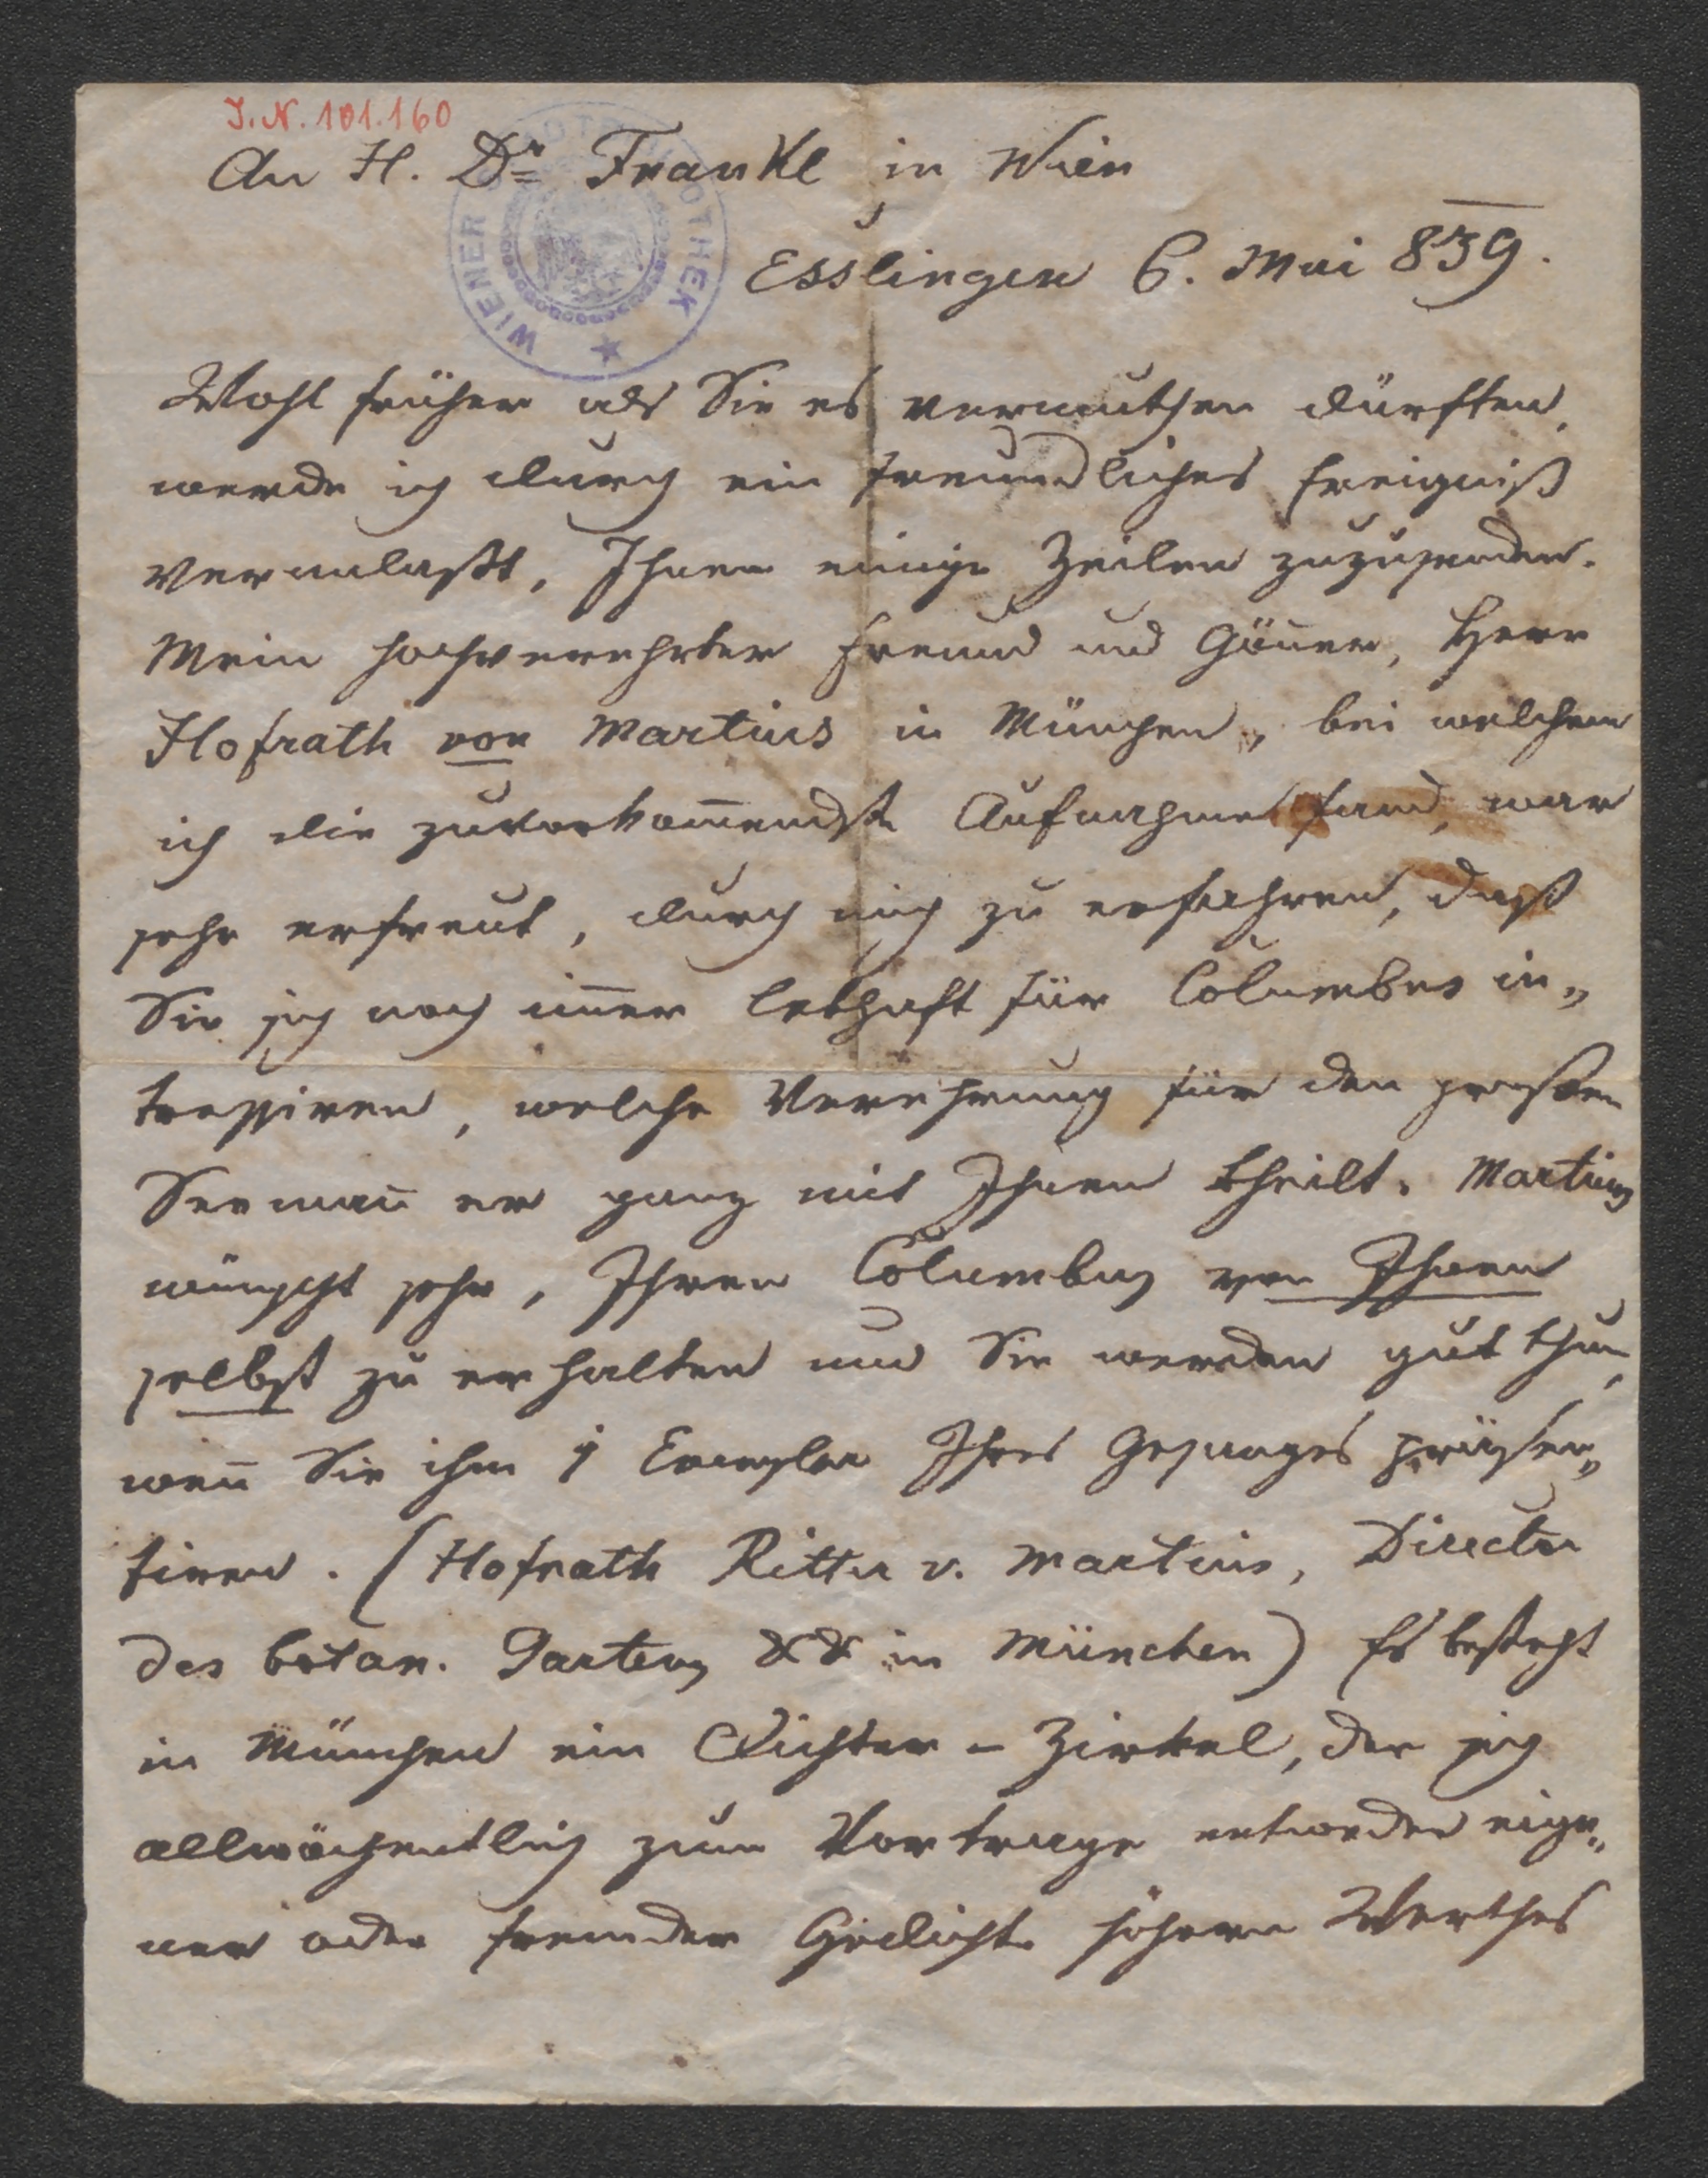 J. N. 101.160
An H. Dr Frankl in Wien
WIENER STADTBIBLIOTHEK
Esslingen 6. Mai 839.
Wohl früher als Sie es vermuthen dürften,
werde ich durch ein freundliches Ereigniß
veranlaßt, Ihnen einige Zeilen zuzusenden.
Mein hochverehrter Freund und Gön̄er, Herr
Hofrath von Martius in München, bei welchem
ich die zuvorkom̄endste Aufnahme fand, war
sehr erfreut, durch mich zu erfahren, daß
Sie sich noch im̄er lebhaft für Columbus in„
tressiren, welche Verehrung für den großen
Seeman̄ er ganz mit Ihnen theilt. Martius
wünscht sehr, Ihren Columbus von Ihnen
selbst zu erhalten und Sie werden gut thun,
wen̄ Sie ihm 1 Exemplar Ihres Gesanges präsen„
tiren. (Hofrath Ritter v. Martius, Director
des botan. Gartens && in München) Es besteht
in München ein Dichter-Zirkel, der sich
allwöchentlich zum Vortrage entweder eige„
ner oder fremder Gedichte höhern Werthes